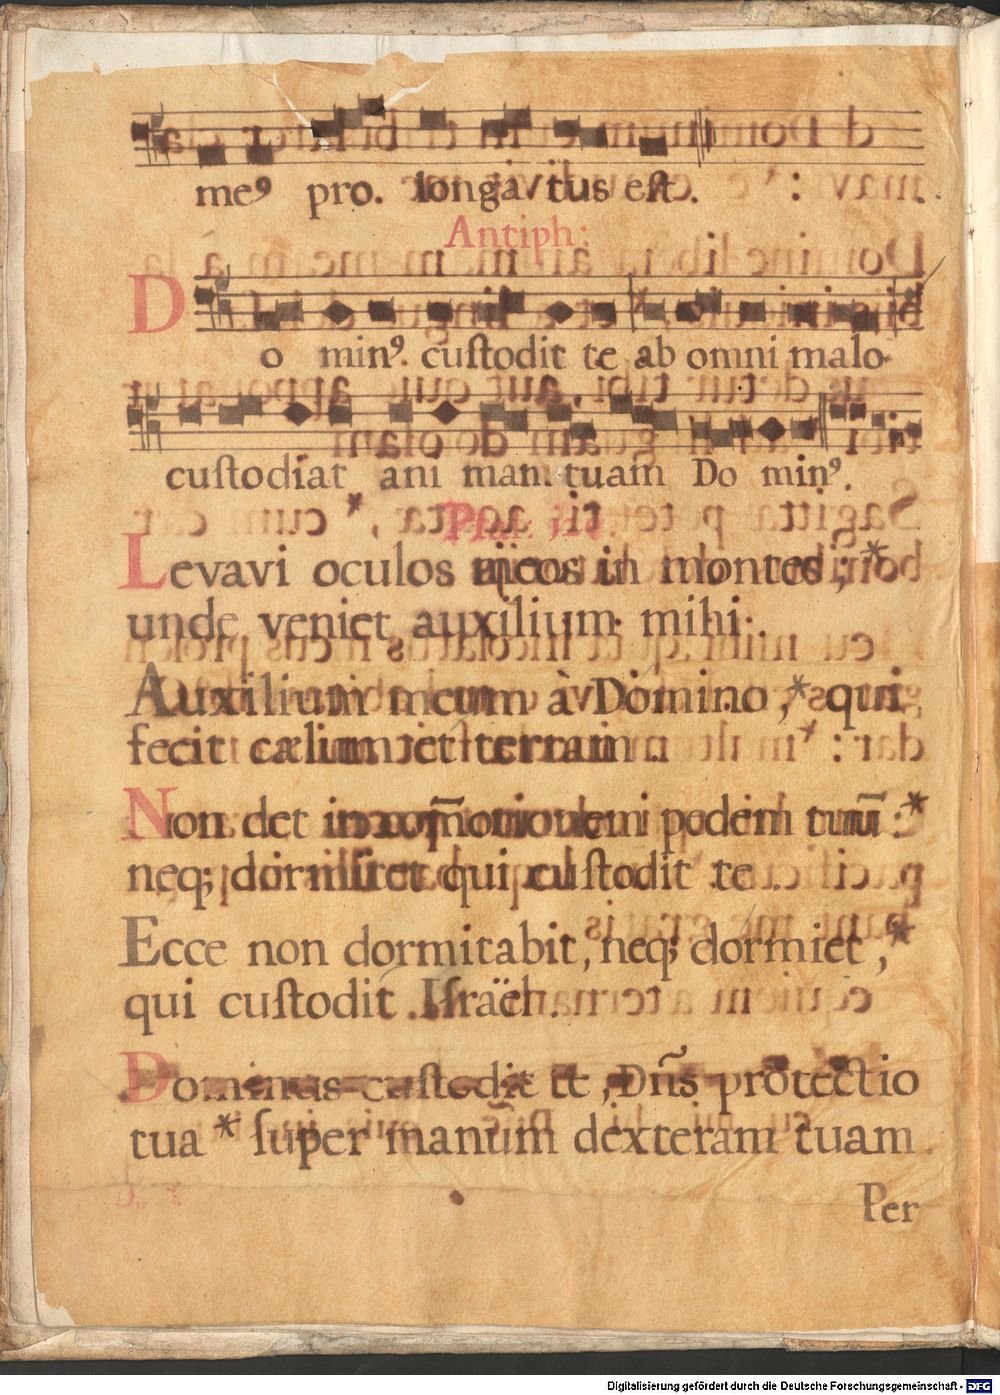 meꝰ pro. longa tus eſt.
Antiph:
Do minꝰ. cuſtodit te ab omni malo
cuſtodiat ani mam tuam Do minꝰ.
Psal: 
Levavi oculos meos in montes ; *
unde veniet auxilium mihi.
Auxilium meum à Domino ,* qui
fecit cælum et terram .
Non det in com̄otionem pedem tuū : *
neq; dormitet qui cuſtodit te .
Ecce non dormitabit, neq; dormiet , *
qui cuſtodit Iſraël .
Dominus cuſtodit te , Dn̄s protectio
tua * ſuper manum dexteram tuam .
Per
Digitalisierung gefördert durch die Deutsche Forschungsgemeinschaft - DFG